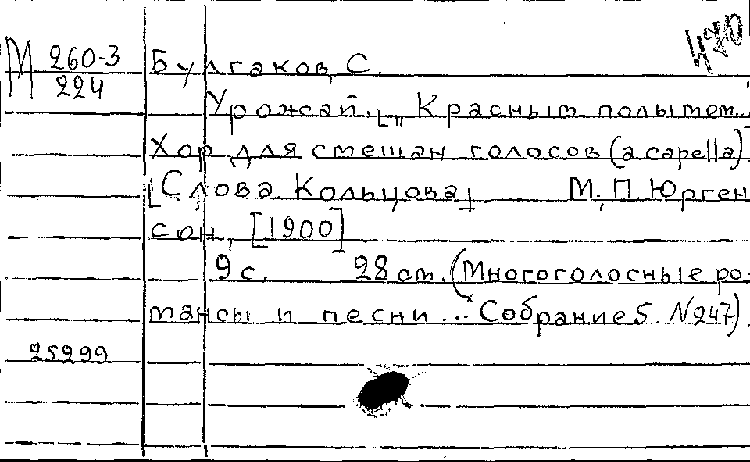 М 260-3
224
470
Булгаков, С.
Урожай. [„Красным полымем...
Хор для смешан голосов (a capella)
[Слова Кольцова] М, П. Юрген
сон, [1900]
9 с. 28 см. (Многоголосные ро-
мансы и песни... Собрание 5. № 247).
25299